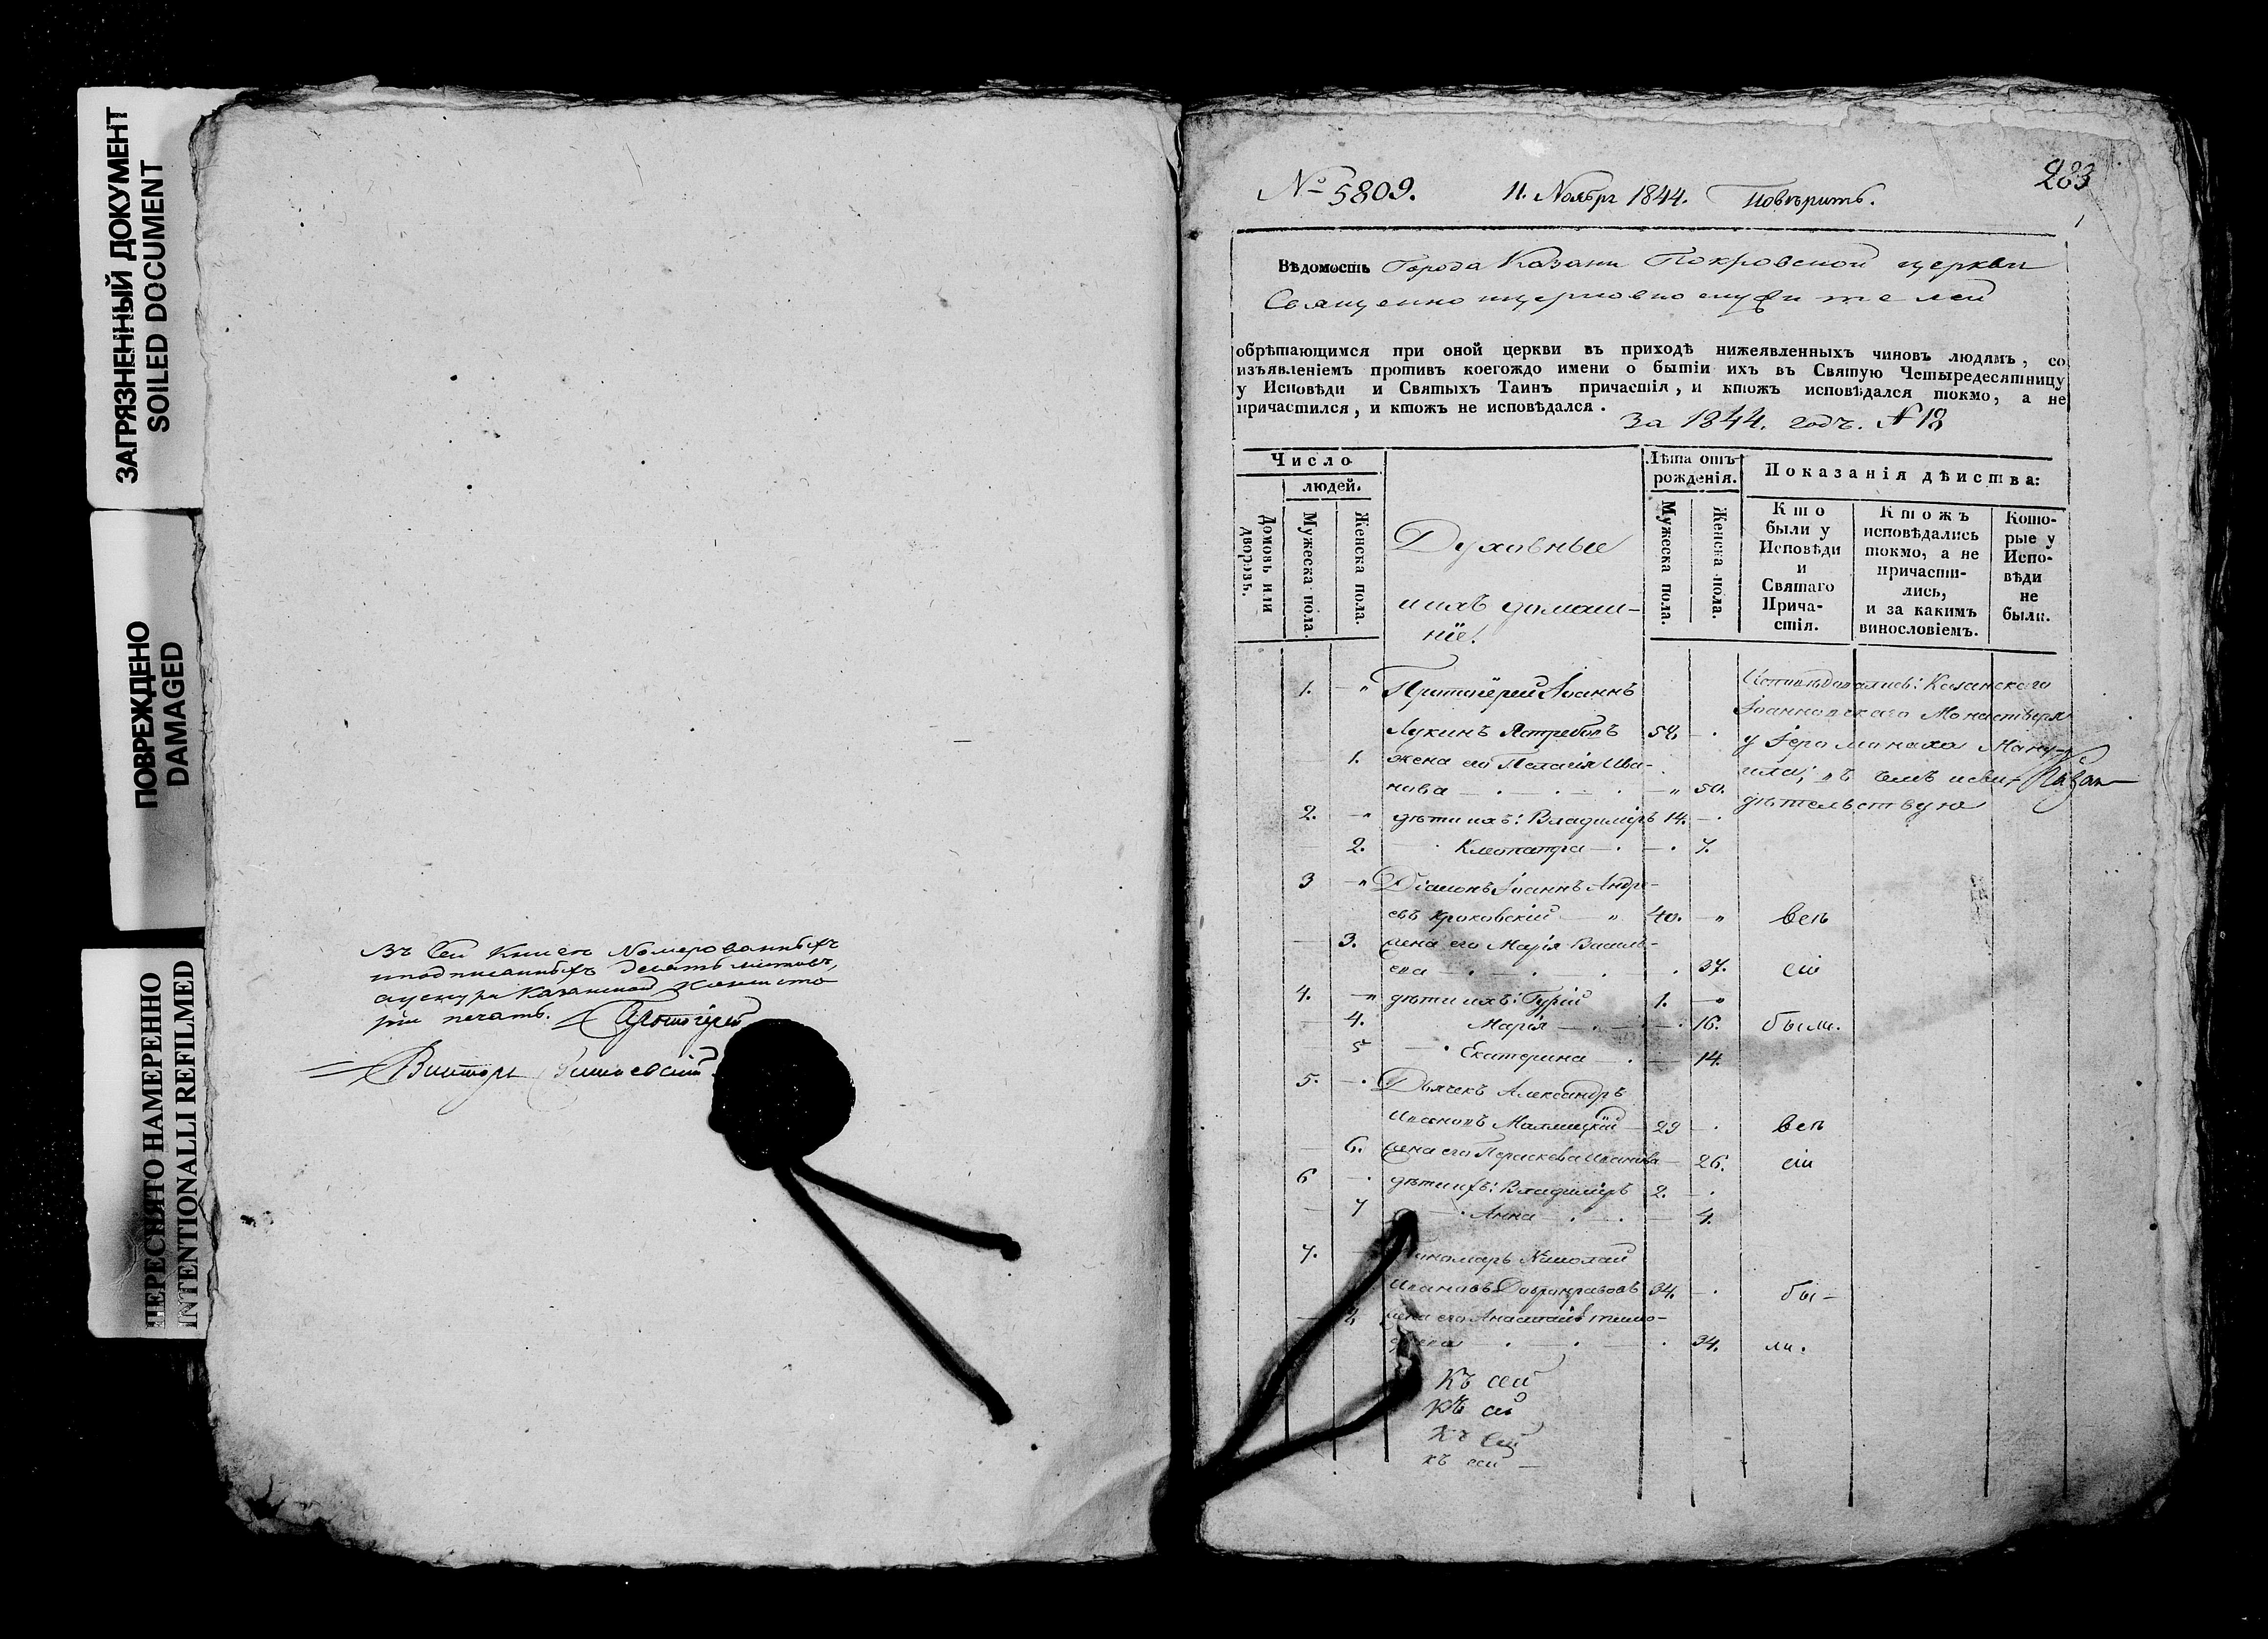 ЗАГРЯЗНЕННЫЙ ДОКУМЕНТ
SOILED DOCUMENT
ПОВРЕЖДЕНО
DAMAGED
ПЕРЕСНЯТО НАМЕРЕННО
INTENTIONALLI REFILMED
Въ сей книге номерованныхъ
и подписанныхъ десять листовъ,
а у снура Казанской Консисто
ріи печать. Протоіерей
Викторъ
№ 5809. 11. Ноябрь 1844. Повѣрить.
283
Вѣдомость Города Казани Покровской церкви
Священно и церковно служителей
обрѣтающимся при оной церкви въ приходѣ нижеявленныхъ чиновъ людямъ, со
изъявленіемъ противъ коегождо имени о бытіи ихъ въ Святую Четыредесятницу
у Исповѣди и Святыхъ Таинъ причастія, и ктожъ исповѣдался токмо, а не
причастился, и ктожъ не исповѣдался.
За 1844. годъ. № 18
Число
людей.
Домовъ или дворовъ.
Мужеска пола.
Женска пола.
Духовные
и ихъ домаш-
ніе!
Лѣта отъ рожденія.
Мужеска пола.
Женска пола.
Показанія дѣиства:
Кто были у Исповѣди и Святаго Прича- стія.
Ктожъ исповѣдались токмо, а не причасти- лись, и за какимъ винословіемъ.
Кото- рые у Испо- вѣди не были.
1. Протоіерей Іоаннъ
Лукинъ Ястребовъ 58.
1. жена его Пелагія Ива-
нова 50.
Исповѣдовались: Казанскаго
Іоанновскаго Монастыря
у Іеромонаха
дѣтельствую
2. дѣти ихъ: Владиміръ 14.
2. Клеопатра 7.
3 Діаконъ Іоаннъ Андре-
евъ Кроковскій 40. всѣ
3. жена его Марія Василь-
ева 37. сіи
4. дѣти ихъ: Гурій 1.
4. Марія 16. были.
5 Екатерина 14.
5. Дьячекъ Александръ
Ивановъ 29 всѣ
6. жена его Параскева Иванова 26. сіи
6 дѣти ихъ: Владиміръ 2.
7 Анна 4.
7. Пономарь Николай
Ивановъ Добронравовъ 34. бы-
жена его Анастасія Тимо-
34. ли.
Къ сей
Къ сей
Къ сей
къ сей